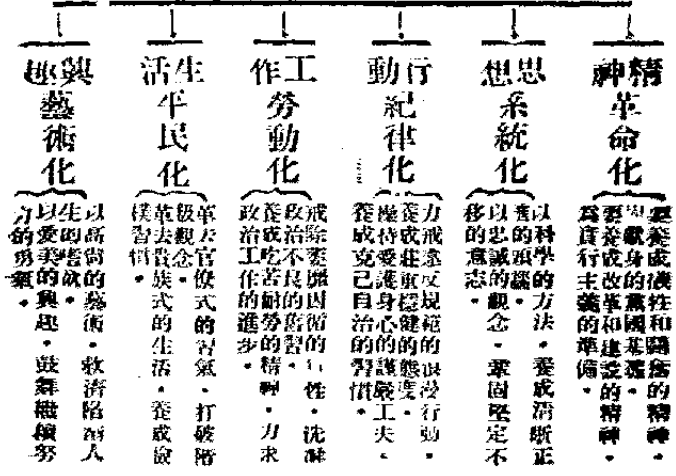 精神
革命化
要養成犧性和鬭爭的精神。
獻身的黨國基礎。
要養成改革和建設的精神。
爲實行主義的準備。
思想
系統化
以科學的方法。養成清晰正
確的頭腦。
以忠誠的觀念。鞏固堅定不
移的意志。
行動
紀律化
力戒違反規範的浪漫行動。
養成莊重穩健的態度。
操持愛護身心的謹嚴工夫。
養成克己自治的習慣。
工作
勞動化
戒除萎靡因循的惰性。洗滌
政治不良的舊習。
養成吃苦耐勞的精神。力求
政治工作的進步。
生活
平民化
革去官僚式的習氣。打破階
級觀念。
革去貴族式的生活。養成儉
樸習慣。
興趣
藝術化
以高尚的藝術。救濟陷溺人
生的嗜欲。
以愛美的興趣。鼓舞繼續努
力的勇氣。